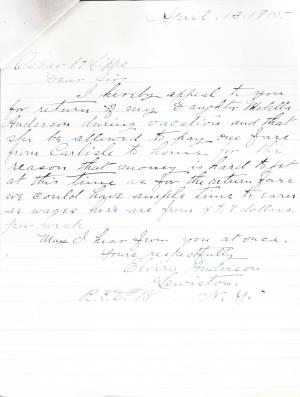 April. 13. 1915.
Oscar H Lipps
Dear Sir
I hereby appeal to you
for return of my Daughter
Anderson during vacation and that
she be allowed to pay one fare
from Carlisle to home for the
reason that money is hard to get
at this time as for the return fare
we could have ample time to earn
as wages here are from
dollars
per week
May I hear from you at once.
Yours respectfully
Elvira Anderson
Lewiston.
R.F.D. 18 N. Y.